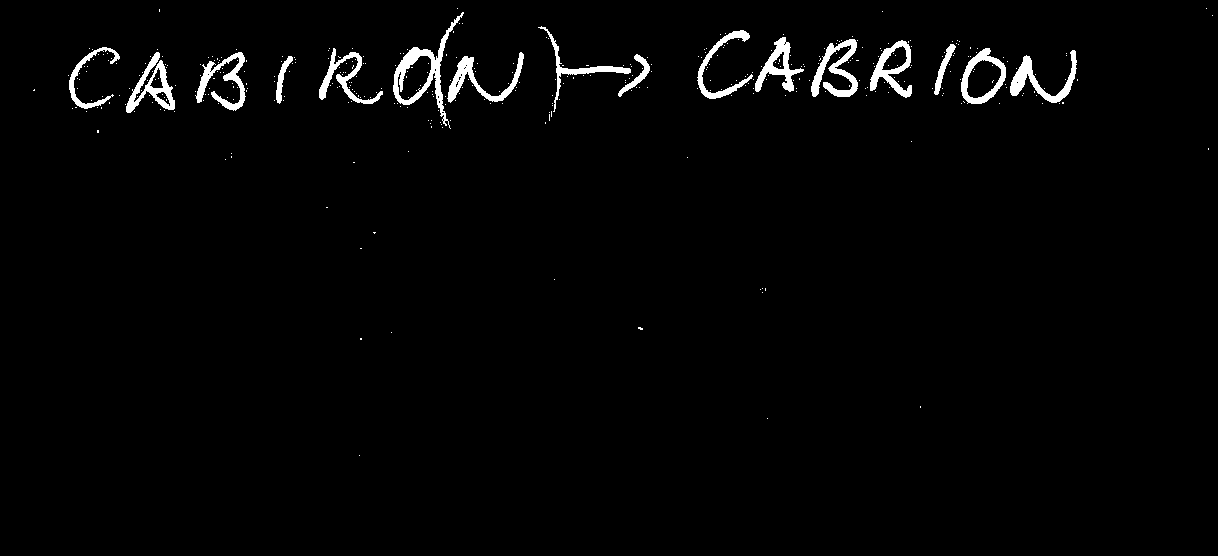 CABIRO(N) → CABRION